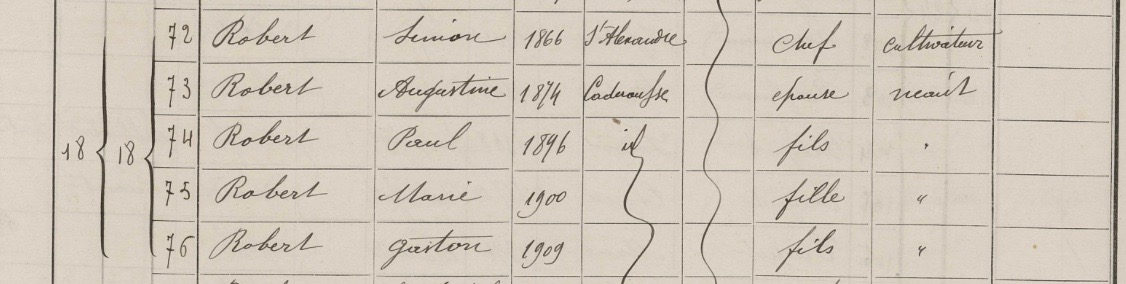 72 Robert Simon 1866 St Alexandre chef cultivateur
73 Robert Augustine 1874 Caderousse épouse néant
18 18 74 Robert Paul 1896 id fils "
75 Robert Marie 1900 fille "
76 Robert gaston 1909 fils "